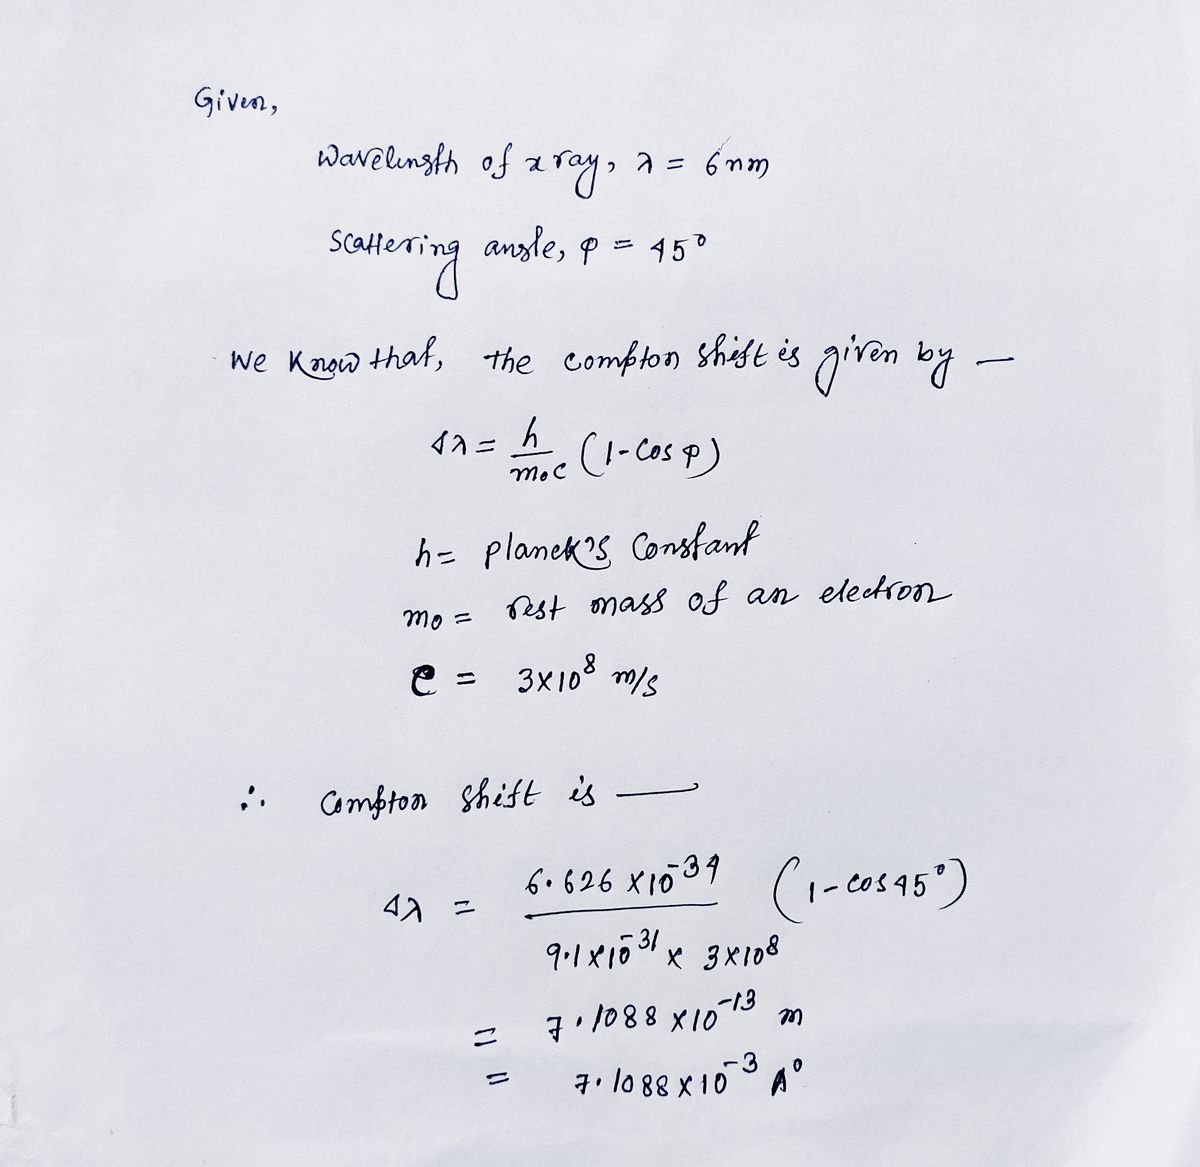 Given,
Wavelength of x ray, λ = 6nm
Scattering angle, φ = 45°
We Know that, the compton shift is given by —
Δλ = h/m₀c (1-Cos φ)
h = planck's Constant
m₀ = rest mass of an electron
c = 3×10⁸ m/s
∴ Compton shift is —
Δλ = 6.626 ×10⁻³⁴ / 9.1×10⁻³¹ × 3×10⁸ (1-cos45°)
= 7.1088 ×10⁻¹³ m
= 7.1088×10⁻³ A°